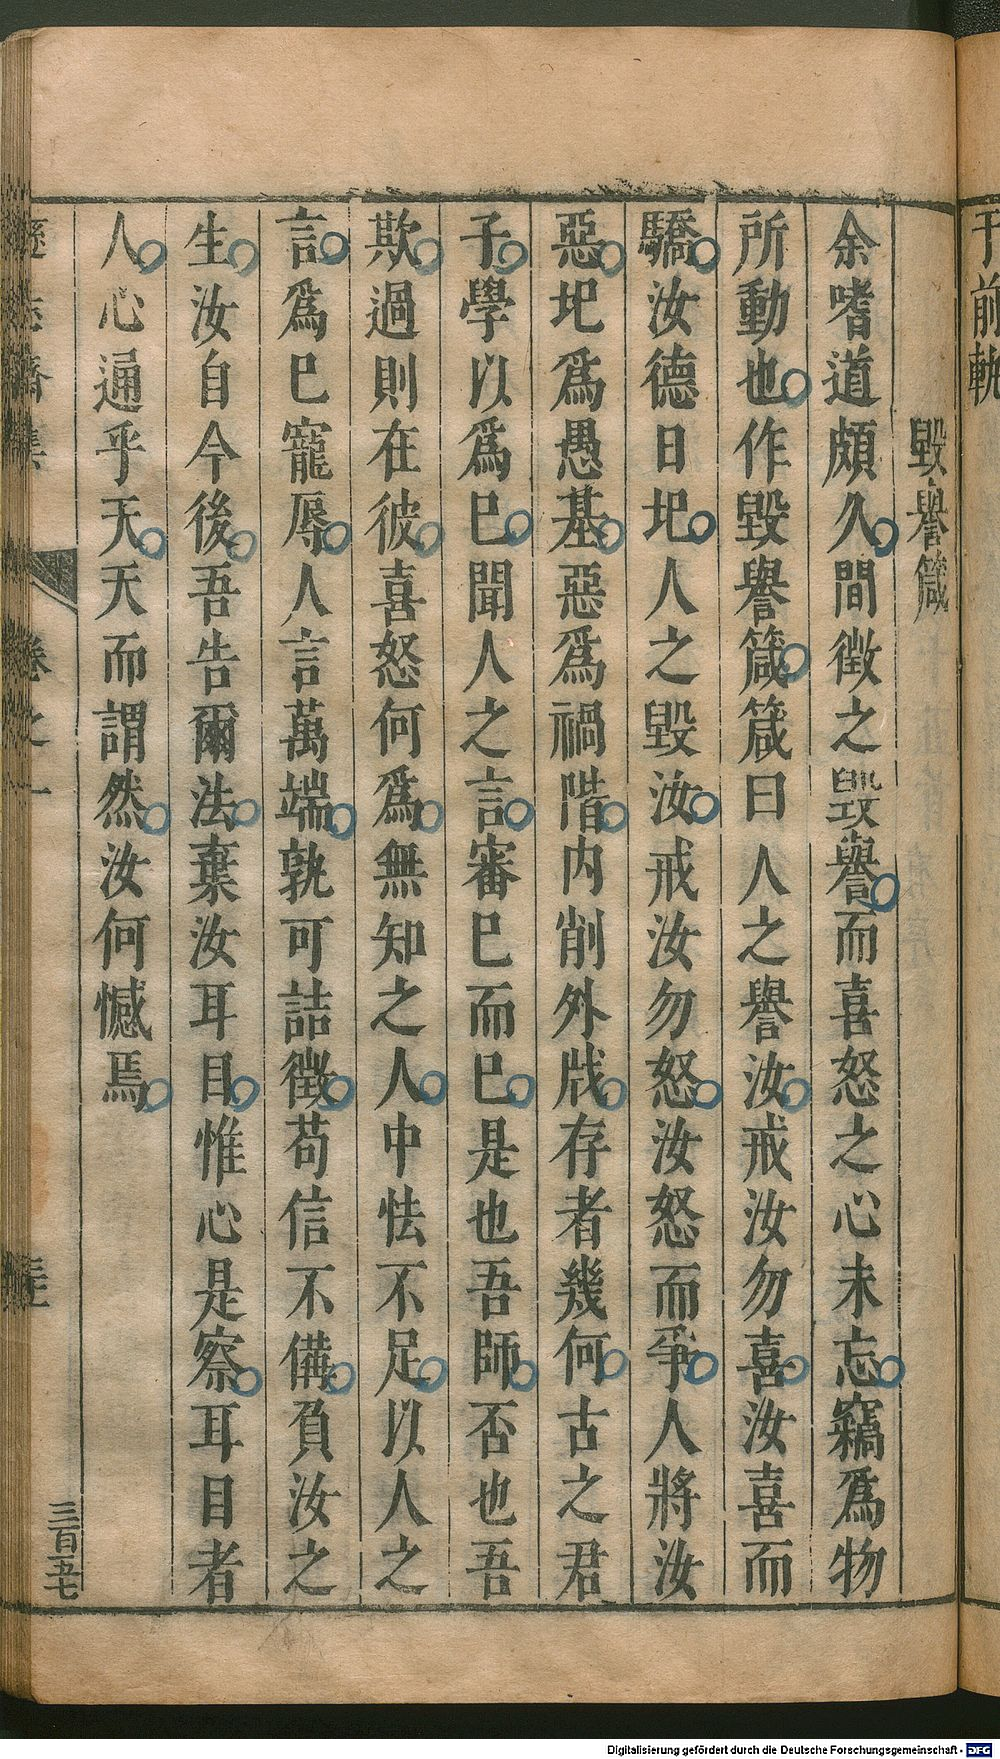 于前軌
毀譽箴
余嗜道頗久間徴之毀譽而喜怒之心未忘竊爲物
所動也作毀譽箴箴曰人之譽汝戒汝勿喜汝喜而
驕汝德日圯人之毀汝戒汝勿怒汝怒而爭人將汝
惡圯爲愚基惡爲禍階内削外戕存者幾何古之君
子學以爲巳聞人之言審巳而巳是也吾師否也吾
欺過則在彼喜怒何爲無知之人中怯不足以人之
言爲巳寵辱人言萬端孰可詰徴苟信不備負汝之
生汝自今後吾告爾法棄汝耳目惟心是察耳目者
人心通乎天天而謂然汝何憾焉
卷之一
三百五七
Digitalisierung gefördert durch die Deutsche Forschungsgemeinschaft - DFG